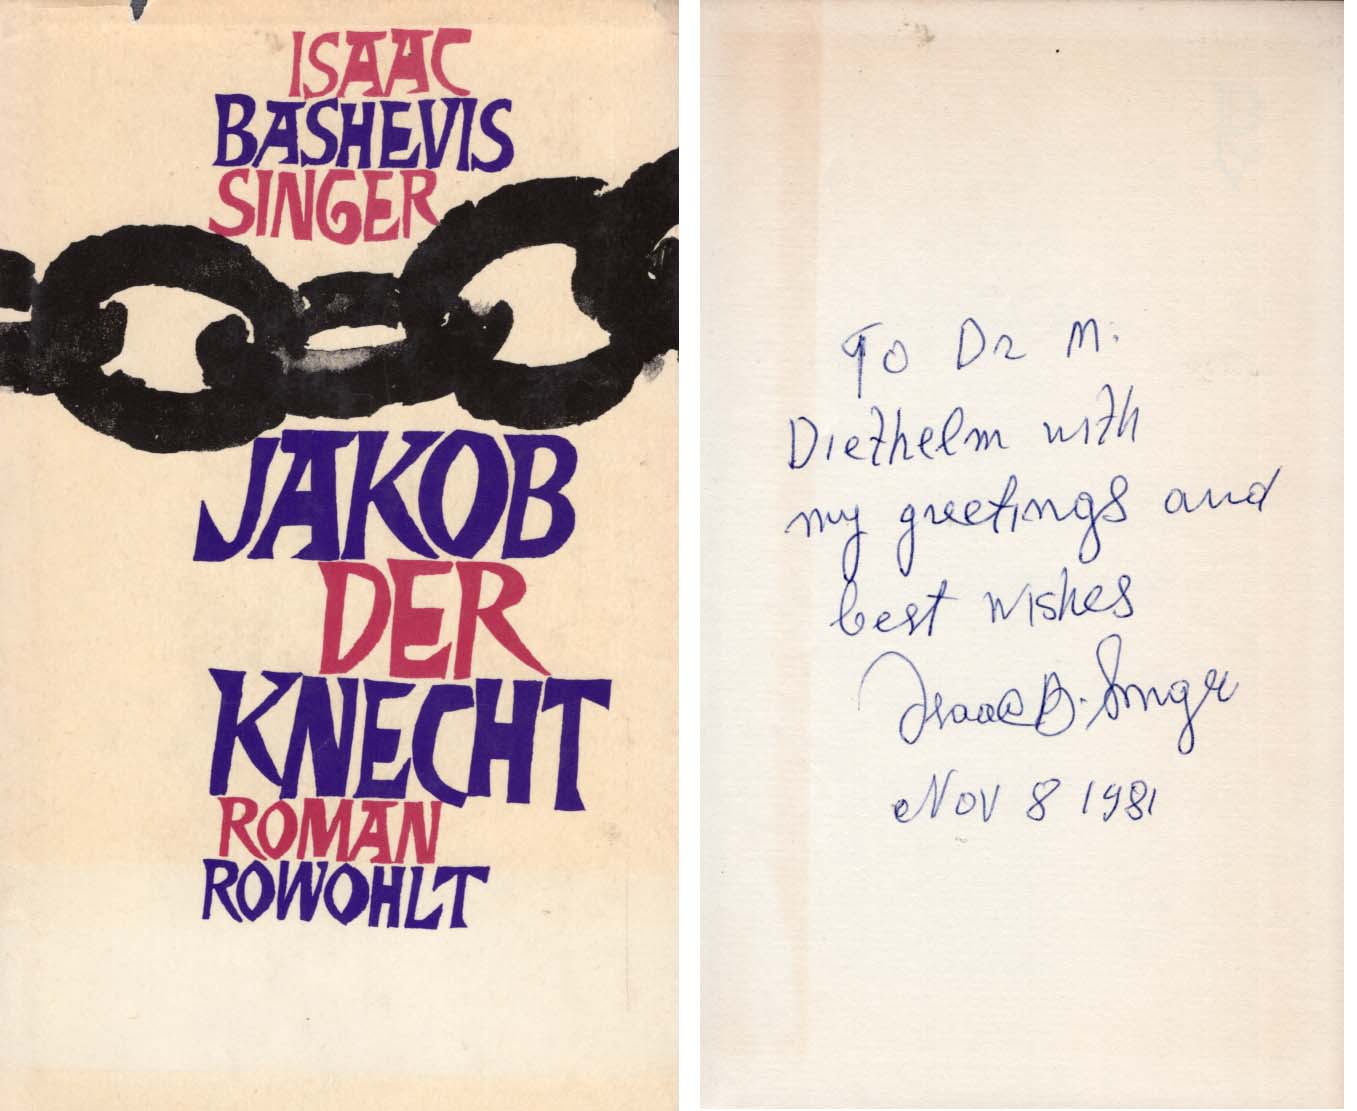 ISAAC
BASHEVIS
SINGER
JAKOB
DER
KNECHT
ROMAN
ROWOHLT
To Dr M.
Diethelm with
my greetings and
best wishes
Isaac B. Singer
Nov 8 1981